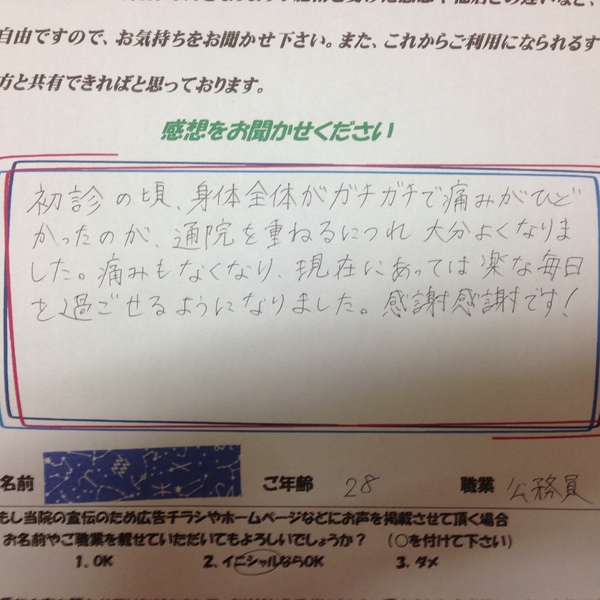 自由ですので、お気持ちをお聞かせ下さい。また、これからご利用になられるす
方と共有できればと思っております。
感想をお聞かせください
初診の頃、身体全体がガチガチで痛みがひど
かったのが、通院を重ねるにつれ大分よくなりま
した。痛みもなくなり、現在にあっては楽な毎日
を過ごせるようになりました。感謝感謝です!
名前 ご年齢 28 職業 公務員
もし当院の宣伝のため広告チラシやホームページなどにお声を掲載させて頂く場合
お名前やご職業を載せていただいてもよろしいでしょうか? (○を付けて下さい)
1. OK 2. イニシャルならOK 3. ダメ